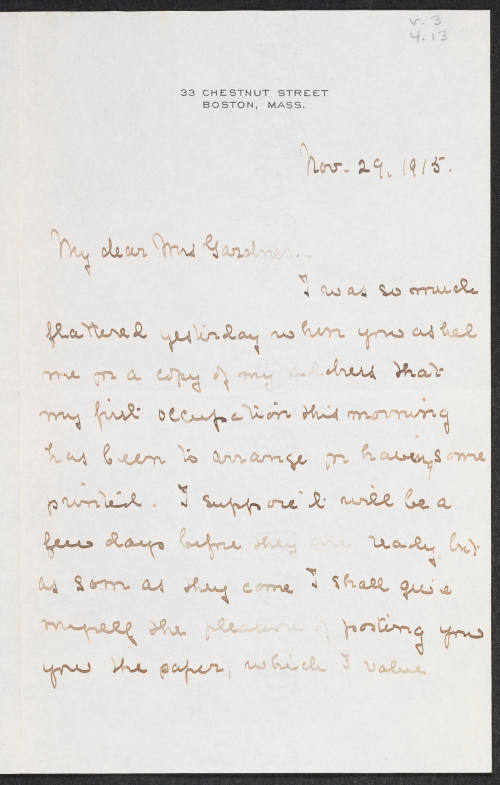 v. 3
4.13
33 CHESTNUT STREET
BOSTON, MASS.
Nov. 29, 1915.
My dear Mrs Gardner..
I was so much
flattered yesterday when you asked
me for a copy of my address that
my first occupation this morning
has been to arrange for having some
printed. I suppose it will be a
few days before they are ready, but
as soon as they come I shall give
myself the pleasure of posting you
you the paper, which I value